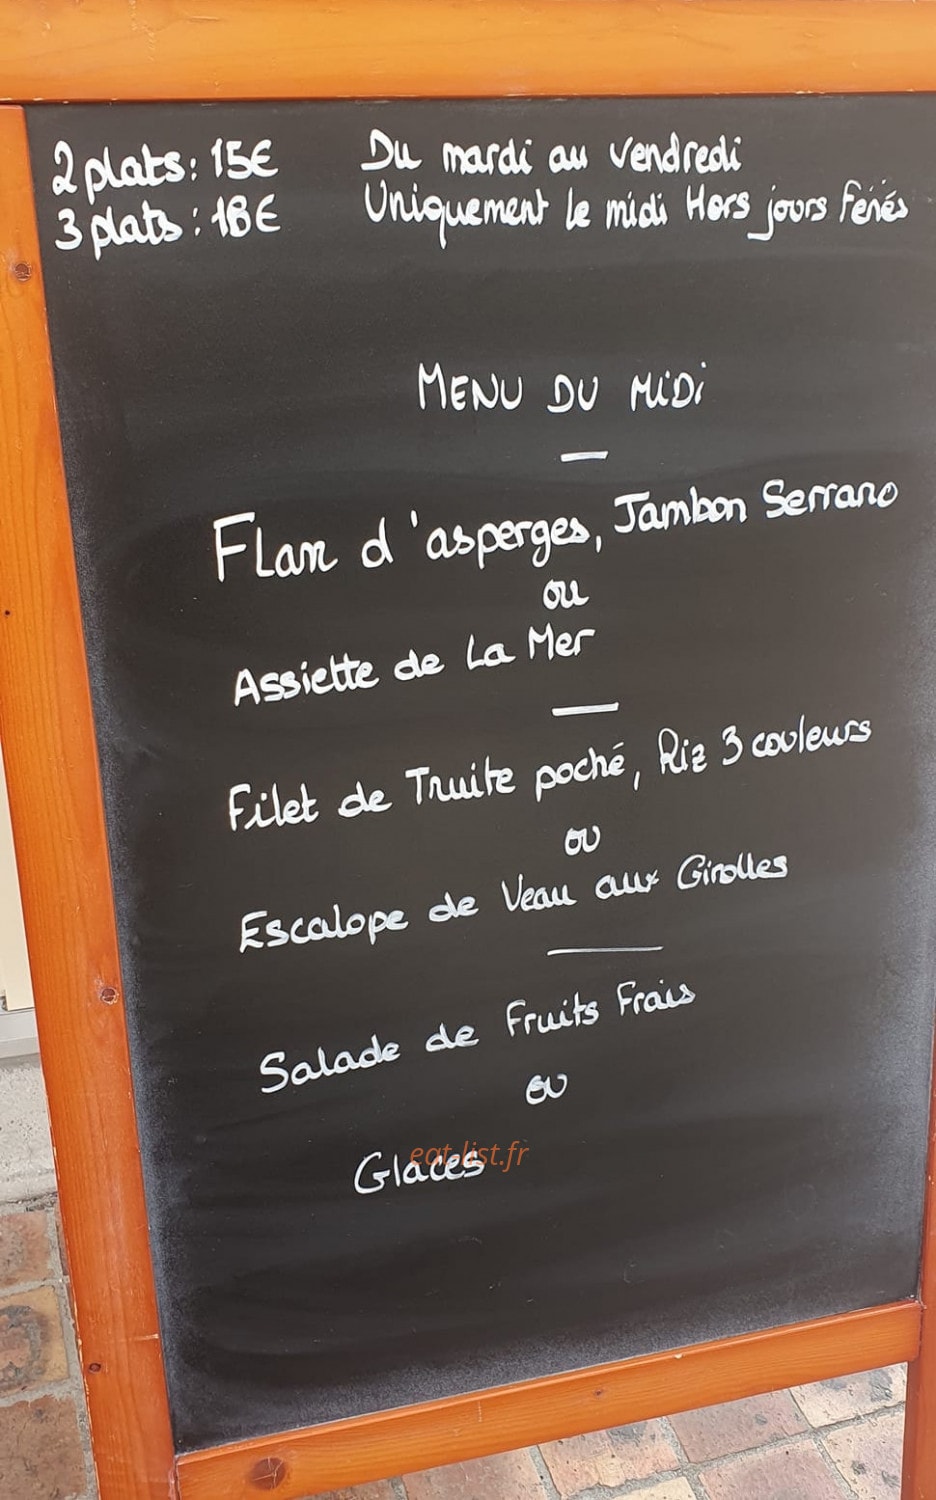 2 plats : 15€
3 plats : 18€
Du mardi au vendredi
Uniquement le midi Hors jours Fériés
MENU DU MiDi
Flan d'asperges, Jambon Serrano
ou
Assiette de La Mer
Filet de Truite poché, Riz 3 couleurs
ou
Escalope de Veau aux Girolles
Salade de Fruits Frais
ou
Glaces
eat-list.fr